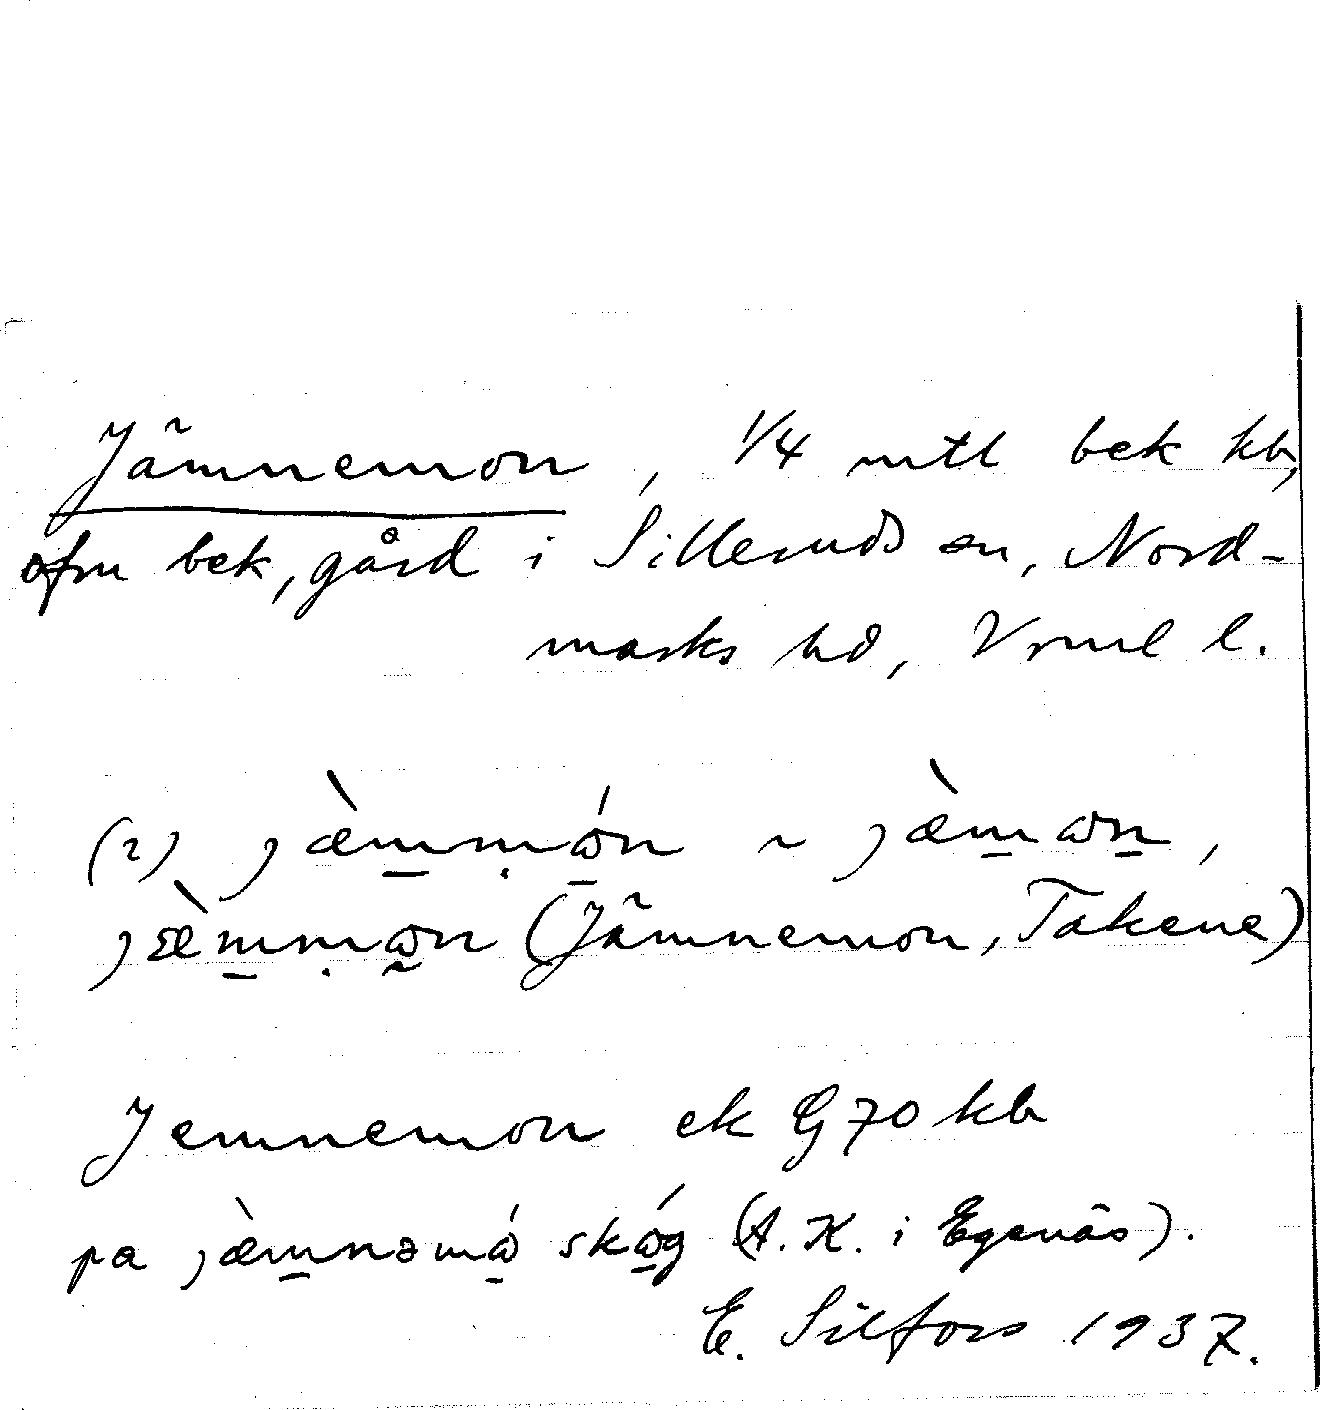 Jämnemon, 1/4 mtl bek kb,
ofru bek, gård i Silleruds sn, Nord-
marks hd, Vrml l.
(2) jæ̀m̲mɷ́n ~ jæ̀m̲ɷn̲,
jæ̀m̲mɷn (Jämnemon, Takene)
Jemnemon ek G 70 kb
pa jæ̀m̲nəmɷ́ skɷ́g (A. K. i Egenäs).
E. Silfors 1937.